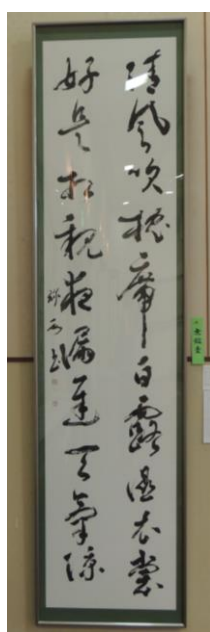 清風吹枕席白露湿衣裳
好是相親夜漏遲天氣涼